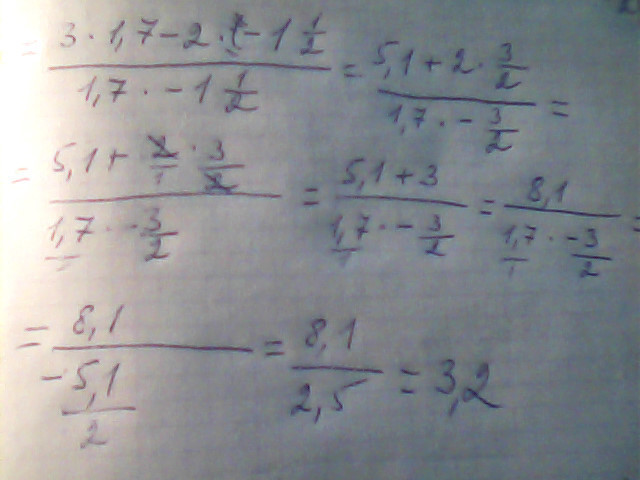 = (3 · 1,7 - 2 · - 1 1/2) / (1,7 · - 1 1/2) = (5,1 + 2 · 3/2) / (1,7 · - 3/2) =
= (5,1 + 2/1 · 3/2) / (1,7/1 · - 3/2) = (5,1 + 3) / (1,7/1 · - 3/2) = 8,1 / (1,7/1 · - 3/2) =
= 8,1 / (- 5,1/2) = 8,1 / 2,5 = 3,2